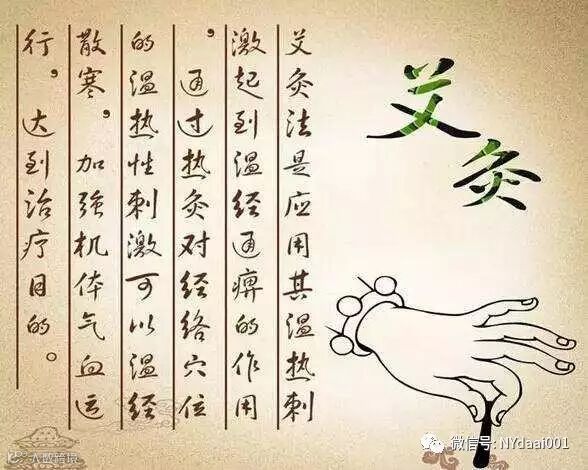 艾灸
艾灸法是应用其温热刺
激起到温经通痹的作用
，通过热灸对经络穴位
的温热性刺激可以温经
散寒，加強机体气血运
行，达到治疗目的。
微信号: NYdaai001
大数跨境